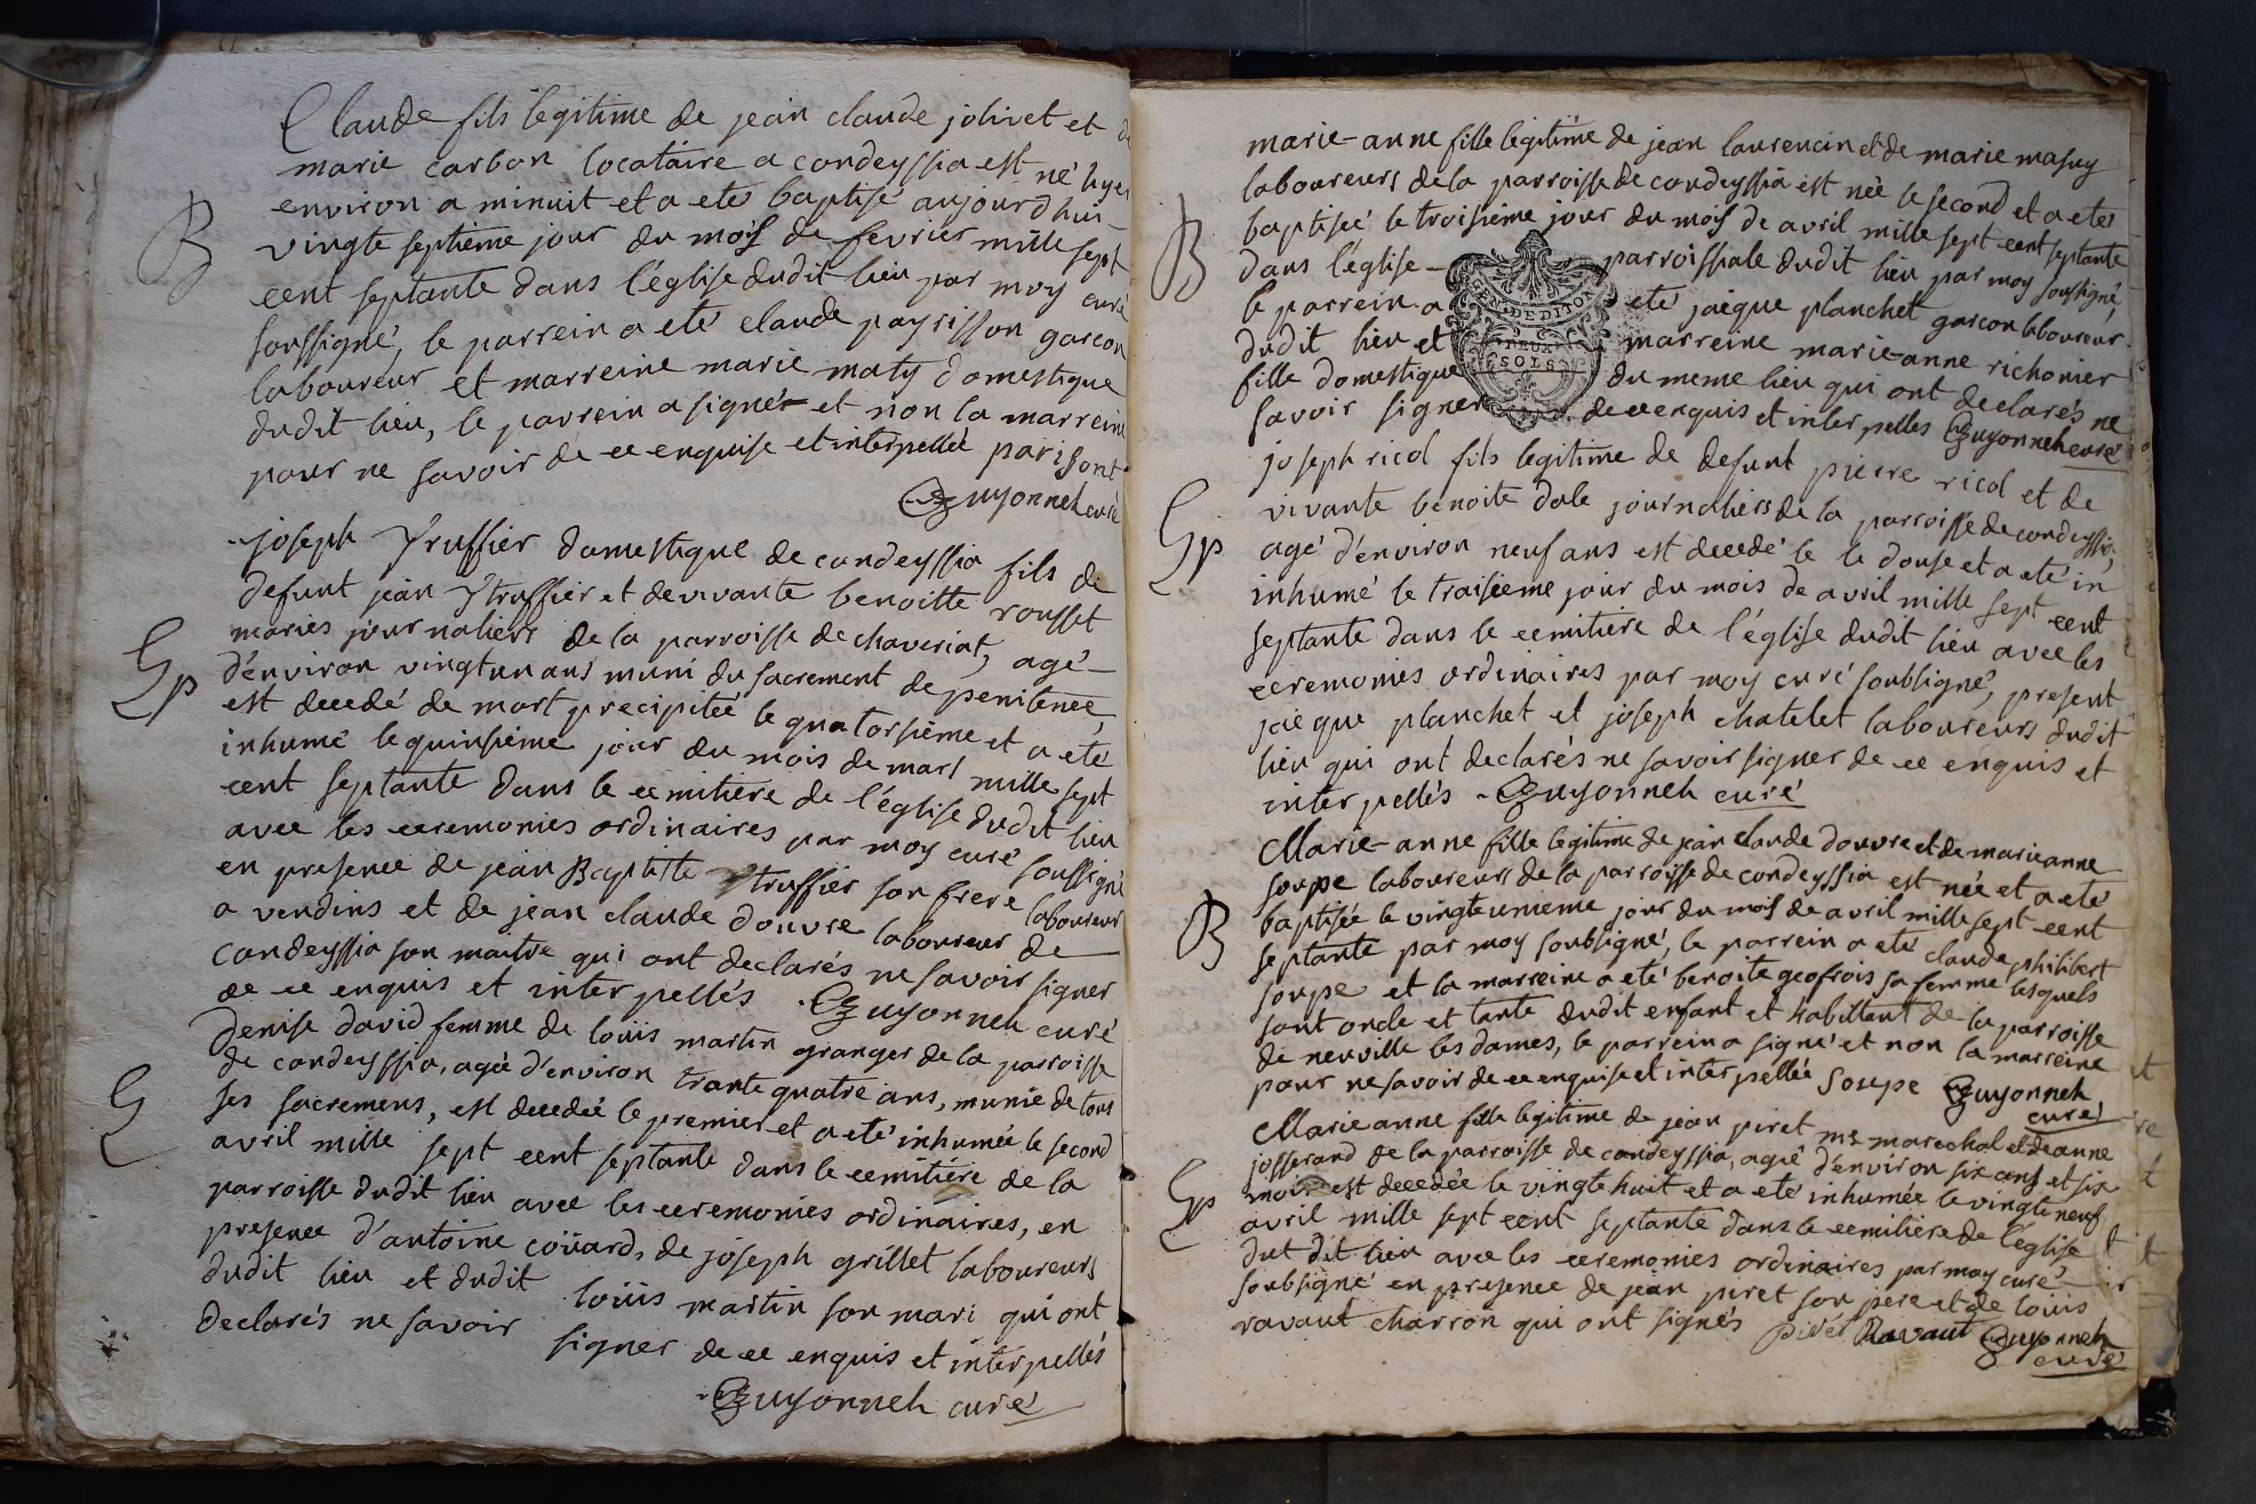 Claude fils legitime de jean claude jolivet et de
marie carbon locataire a condeyssia est né hyer
environ a minuit et a eté baptisé aujourdhui
B
vingte septieme jour du mois de fevrier mille sept
cent septante dans l'église dudit lieu par moy curé
soussigné, le parrein a eté claude payrisson garcon
laboureur et marreine marie maty domestique
dudit lieu, le parrein a signé et non la marreine
pour ne savoir de ce enquise et interpellée parisont
Guyonneh curé
joseph Truffier domestique de condeyssia fils de
defunt jean Truffier et de vivante benoitte rousset
mariés journaliers de la parroisse de chaveriat, agé
Sp
d'environ vingt un ans muni du sacrement de penitence,
est decedé de mort precipitée le quatorsiéme et a eté
inhumé le quinsiéme jour du mois de mars mille sept
cent septante dans le cemitiére de l'église dudit lieu
avec les ceremonies ordinaires par moy curé soussigné
en presence de jean Baptiste truffier son frere laboureur
a vendins et de jean claude douvre laboureur de
condeyssia son maitre qui ont declarés ne savoir signer
de ce enquis et interpellés Guyonneh curé
Denise david femme de loüis martin granger de la parroisse
de condeyssia, agée d'environ trante quatre ans, munie de tous
S
ses sacremens, est decedée le premier et a eté inhumée le second
avril mille sept cent septante dans le cemitiére de la
parroisse dudit lieu avec les ceremonies ordinaires, en
presence d'antoine coüard, de joseph grillet laboureurs
dudit lieu et dudit loüis martin son mari qui ont
declarés ne savoir signer de ce enquis et interpellés
Guyonneh curé
marie-anne fille legitime de jean laurencin et de marie masuy
laboureurs de la parroisse de condeyssia est née le second et a eté
B
baptisée le troisiéme jour du mois de avril mille sept cent septante
dans l'église parroissiale dudit lieu par moy soussigné,
le parrein a eté jacque planchet garcon laboureur
dudit lieu et marreine marie-anne richonier
fille domestique du meme lieu qui ont declarés ne
savoir signer de ce enquis et interpelles Guyonneh curé
GEN. DE DIJON
DEUX
SOLS
joseph ricol fils legitime de defunt pierre ricol et de
vivante benoite dole journaliers de la parroisse de condeyssia,
Sp
agé d'environ neuf ans est decedé le le douse et a eté in
inhumé le traisieme jour du mois de avril mille sept cent
septante dans le cemitiére de l'église dudit lieu avec les
ceremonies ordinaires par moy curé soubsigné, present
jacque planchet et joseph chatelet laboureurs dudit
lieu qui ont declarés ne savoir signer de ce enquis et
interpellés Guyonneh curé
Marie-anne fille legitime de jean claude douvre et de marie anne
soupe laboureurs de la parroisse de condeyssia est née et a eté
B
baptisée le vingte unieme jour du mois de avril mille sept cent
septante par moy soubsigné, le parrein a eté claude philibert
soupe et la marreine a eté benoite geofrois sa femme lesquels
sont oncle et tante dudit enfant et habittant de la parroisse
de neuville les dames, le parrein a signé et non la marreine
pour ne savoir de ce enquise et interpellée Soupe Guyonneh
curé
Marie anne fille legitime de jean piret me marechal et de anne
josserand de la parroisse de condeyssia, agée d'environ six ans et six
Sp
mois est decedée le vingte huit et a eté inhumée le vingte neuf
avril mille sept cent septante dans le cemitiére de l'église
dut dit lieu avec les ceremonies ordinaires par moy curé
soubsigné en presence de jean piret son pere et de loüis
ravaut charron qui ont signés piret Ravaut Guyonneh
curé